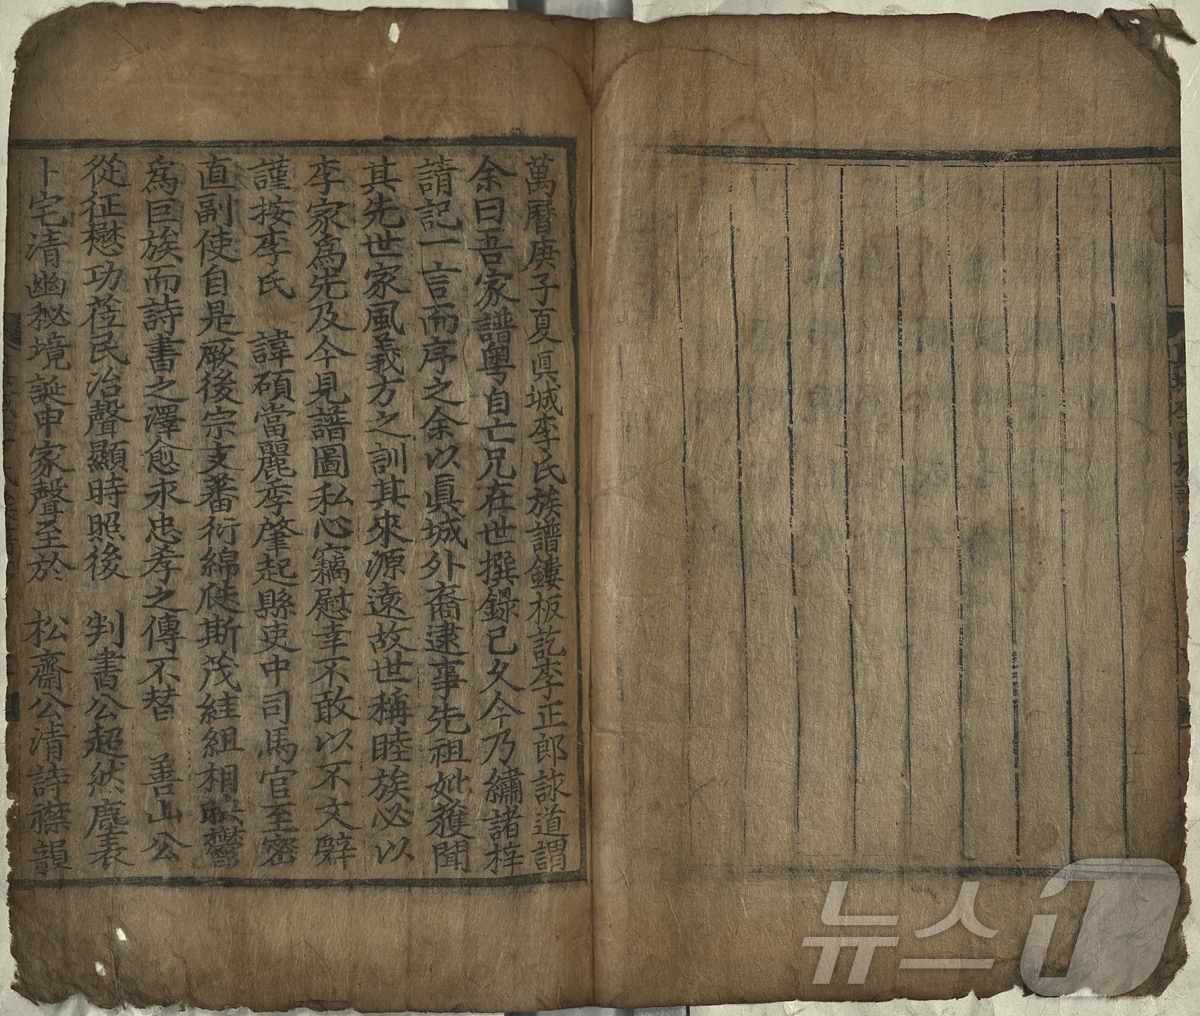 萬曆庚子夏眞城李氏族譜鏤板訖李正郎詠道謂
余曰吾家譜粤自亡兄在世撰錄已久今乃繡諸梓
請記一言而序之余以眞城外裔逮事先祖妣獲聞
其先世家風義方之訓其來源遠故世稱睦族必以
李家爲先及今見譜圖私心竊慰幸不敢以不文辭
謹按李氏 諱碩當麗季肇起縣吏中司馬官至密
直副使自是厥後宗支蕃衍綿瓞斯茂絓組相映鬱
爲巨族而詩書之澤愈永忠孝之傳不替 善山公
從征懋功莅民治聲顯時照後 判書公超然塵表
卜宅淸幽秘境誕申家聲至於 松齋公淸詩襟韻
뉴스1